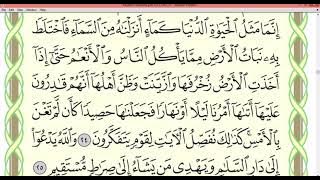 إِنَّمَا مَثَلُ ٱلْحَيَوٰةِ ٱلدُّنْيَا كَمَآءٍ أَنزَلْنَٰهُ مِنَ ٱلسَّمَآءِ فَٱخْتَلَطَ
بِهِۦ نَبَاتُ ٱلْأَرْضِ مِمَّا يَأْكُلُ ٱلنَّاسُ وَٱلْأَنْعَٰمُ حَتَّىٰٓ إِذَآ
أَخَذَتِ ٱلْأَرْضُ زُخْرُفَهَا وَٱزَّيَّنَتْ وَظَنَّ أَهْلُهَآ أَنَّهُمْ قَٰدِرُونَ
عَلَيْهَآ أَتَىٰهَآ أَمْرُنَا لَيْلًا أَوْ نَهَارًا فَجَعَلْنَٰهَا حَصِيدًا كَأَن لَّمْ تَغْنَ
بِٱلْأَمْسِ ۚ كَذَٰلِكَ نُفَصِّلُ ٱلْءَايَٰتِ لِقَوْمٍ يَتَفَكَّرُونَ ٢٤ وَٱللَّهُ يَدْعُوٓا۟
إِلَىٰ دَارِ ٱلسَّلَٰمِ وَيَهْدِى مَن يَشَآءُ إِلَىٰ صِرَٰطٍ مُّسْتَقِيمٍ ٢٥